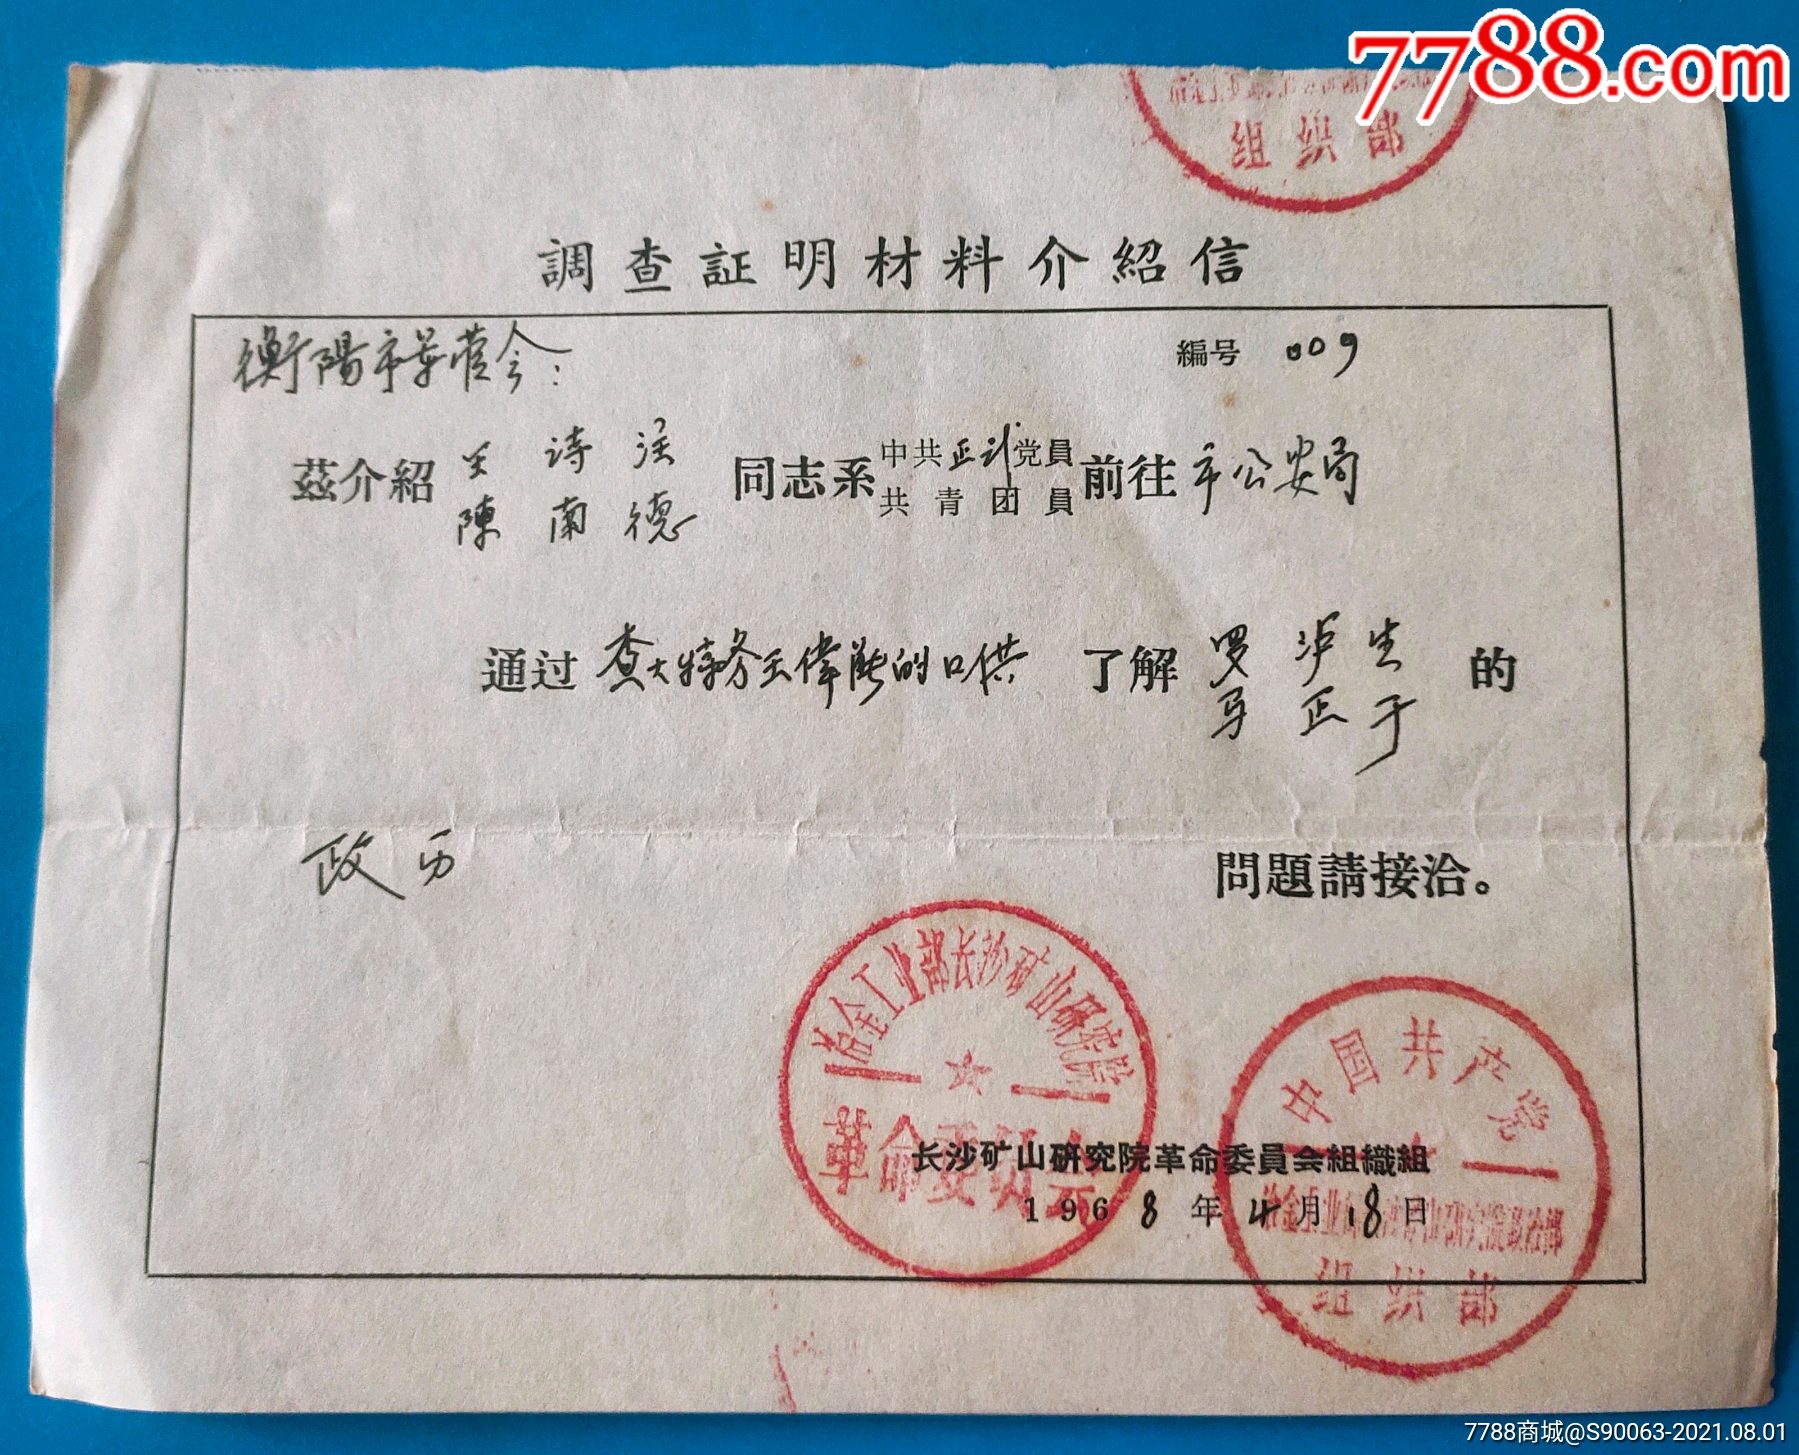 7788.com
组织部
調查証明材料介紹信
衡陽市革管会：
編号 009
茲介紹 王诗法 陳南德 同志系 中共正式党員 共青团員 前往 市公安局
通过 查大特务王偉能的口供 了解 罗泸生 马正于 的
政历 問題請接洽。
冶金工业部长沙矿山研究院
革命委员会
中国共产党
冶金工业部长沙矿山研究院政治部
组织部
长沙矿山研究院革命委員会組織組
1968年4月18日
7788商城@S90063-2021.08.01